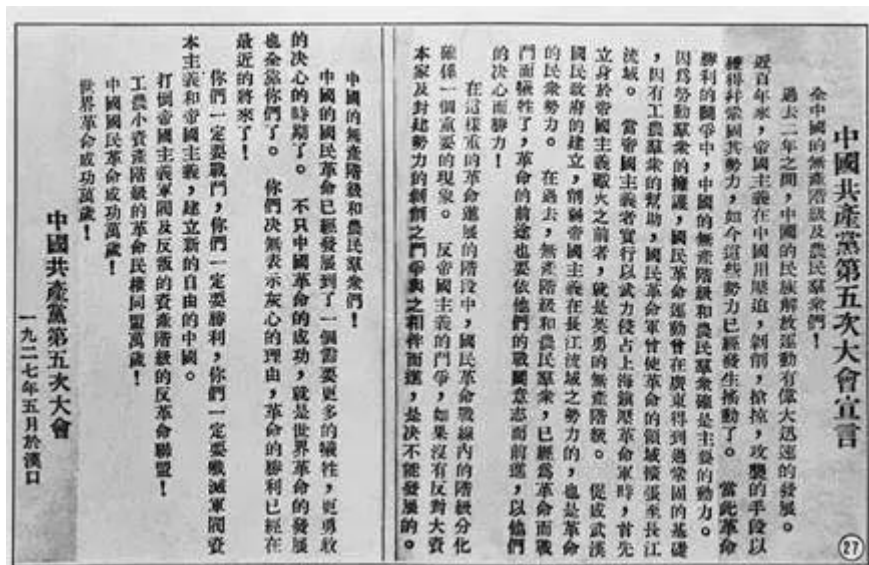 中國共產黨第五次大會宣言
全中國的無產階級及農民羣衆們！
過去二年之間，中國的民族解放運動有偉大迅速的發展。
近百年來，帝國主義在中國用壓迫，剝削，搶掠，攻襲的手段以
獲得幷鞏固其勢力，如今這些勢力已經發生搖動了。當此革命
勝利的鬭爭中，中國的無產階級和農民羣衆確是主要的動力。
因爲勞動羣衆的擁護，國民革命運動曾在廣東得到過鞏固的基礎
，因有工農羣衆的幫助，國民革命軍曾使革命的領域擴張至長江
流域。當帝國主義者實行以武力侵占上海鎮壓革命軍時，首先
立身於帝國主義礮火之前者，就是英勇的無產階級。促成武漢
國民政府的建立，削弱帝國主義在長江流域之勢力的，也是革命
的民衆勢力。在過去，無產階級和農民羣衆，已經爲革命而戰
鬥而犧牲了，革命的前途也要依他們的戰鬭意志而前進，以他們
的决心而勝力！
在這樣重的革命進展的階段中，國民革命戰線內的階級分化
確係一個重要的現象。反帝國主義的鬥爭，如果沒有反對大資
本家及封建勢力的剝削之鬥爭與之相伴而進，是决不能發展的。
中國的無產階級和農民羣衆們！
中國的國民革命已經發展到了一個需要更多的犧牲，更勇敢
的决心的時期了。不只中國革命的成功，就是世界革命的發展
也全靠你們了。你們决無表示灰心的理由，革命的勝利已經在
最近的將來了！
你們一定要戰鬥，你們一定要勝利，你們一定要殲滅軍閥資
本主義和帝國主義，建立新的自由的中國。
打倒帝國主義軍閥及反叛的資產階級的反革命聯盟！
工農小資產階級的革命民權同盟萬歲！
中國國民革命成功萬歲！
世界革命成功萬歲！
中國共產黨第五次大會
一九二七年五月於漢口
27